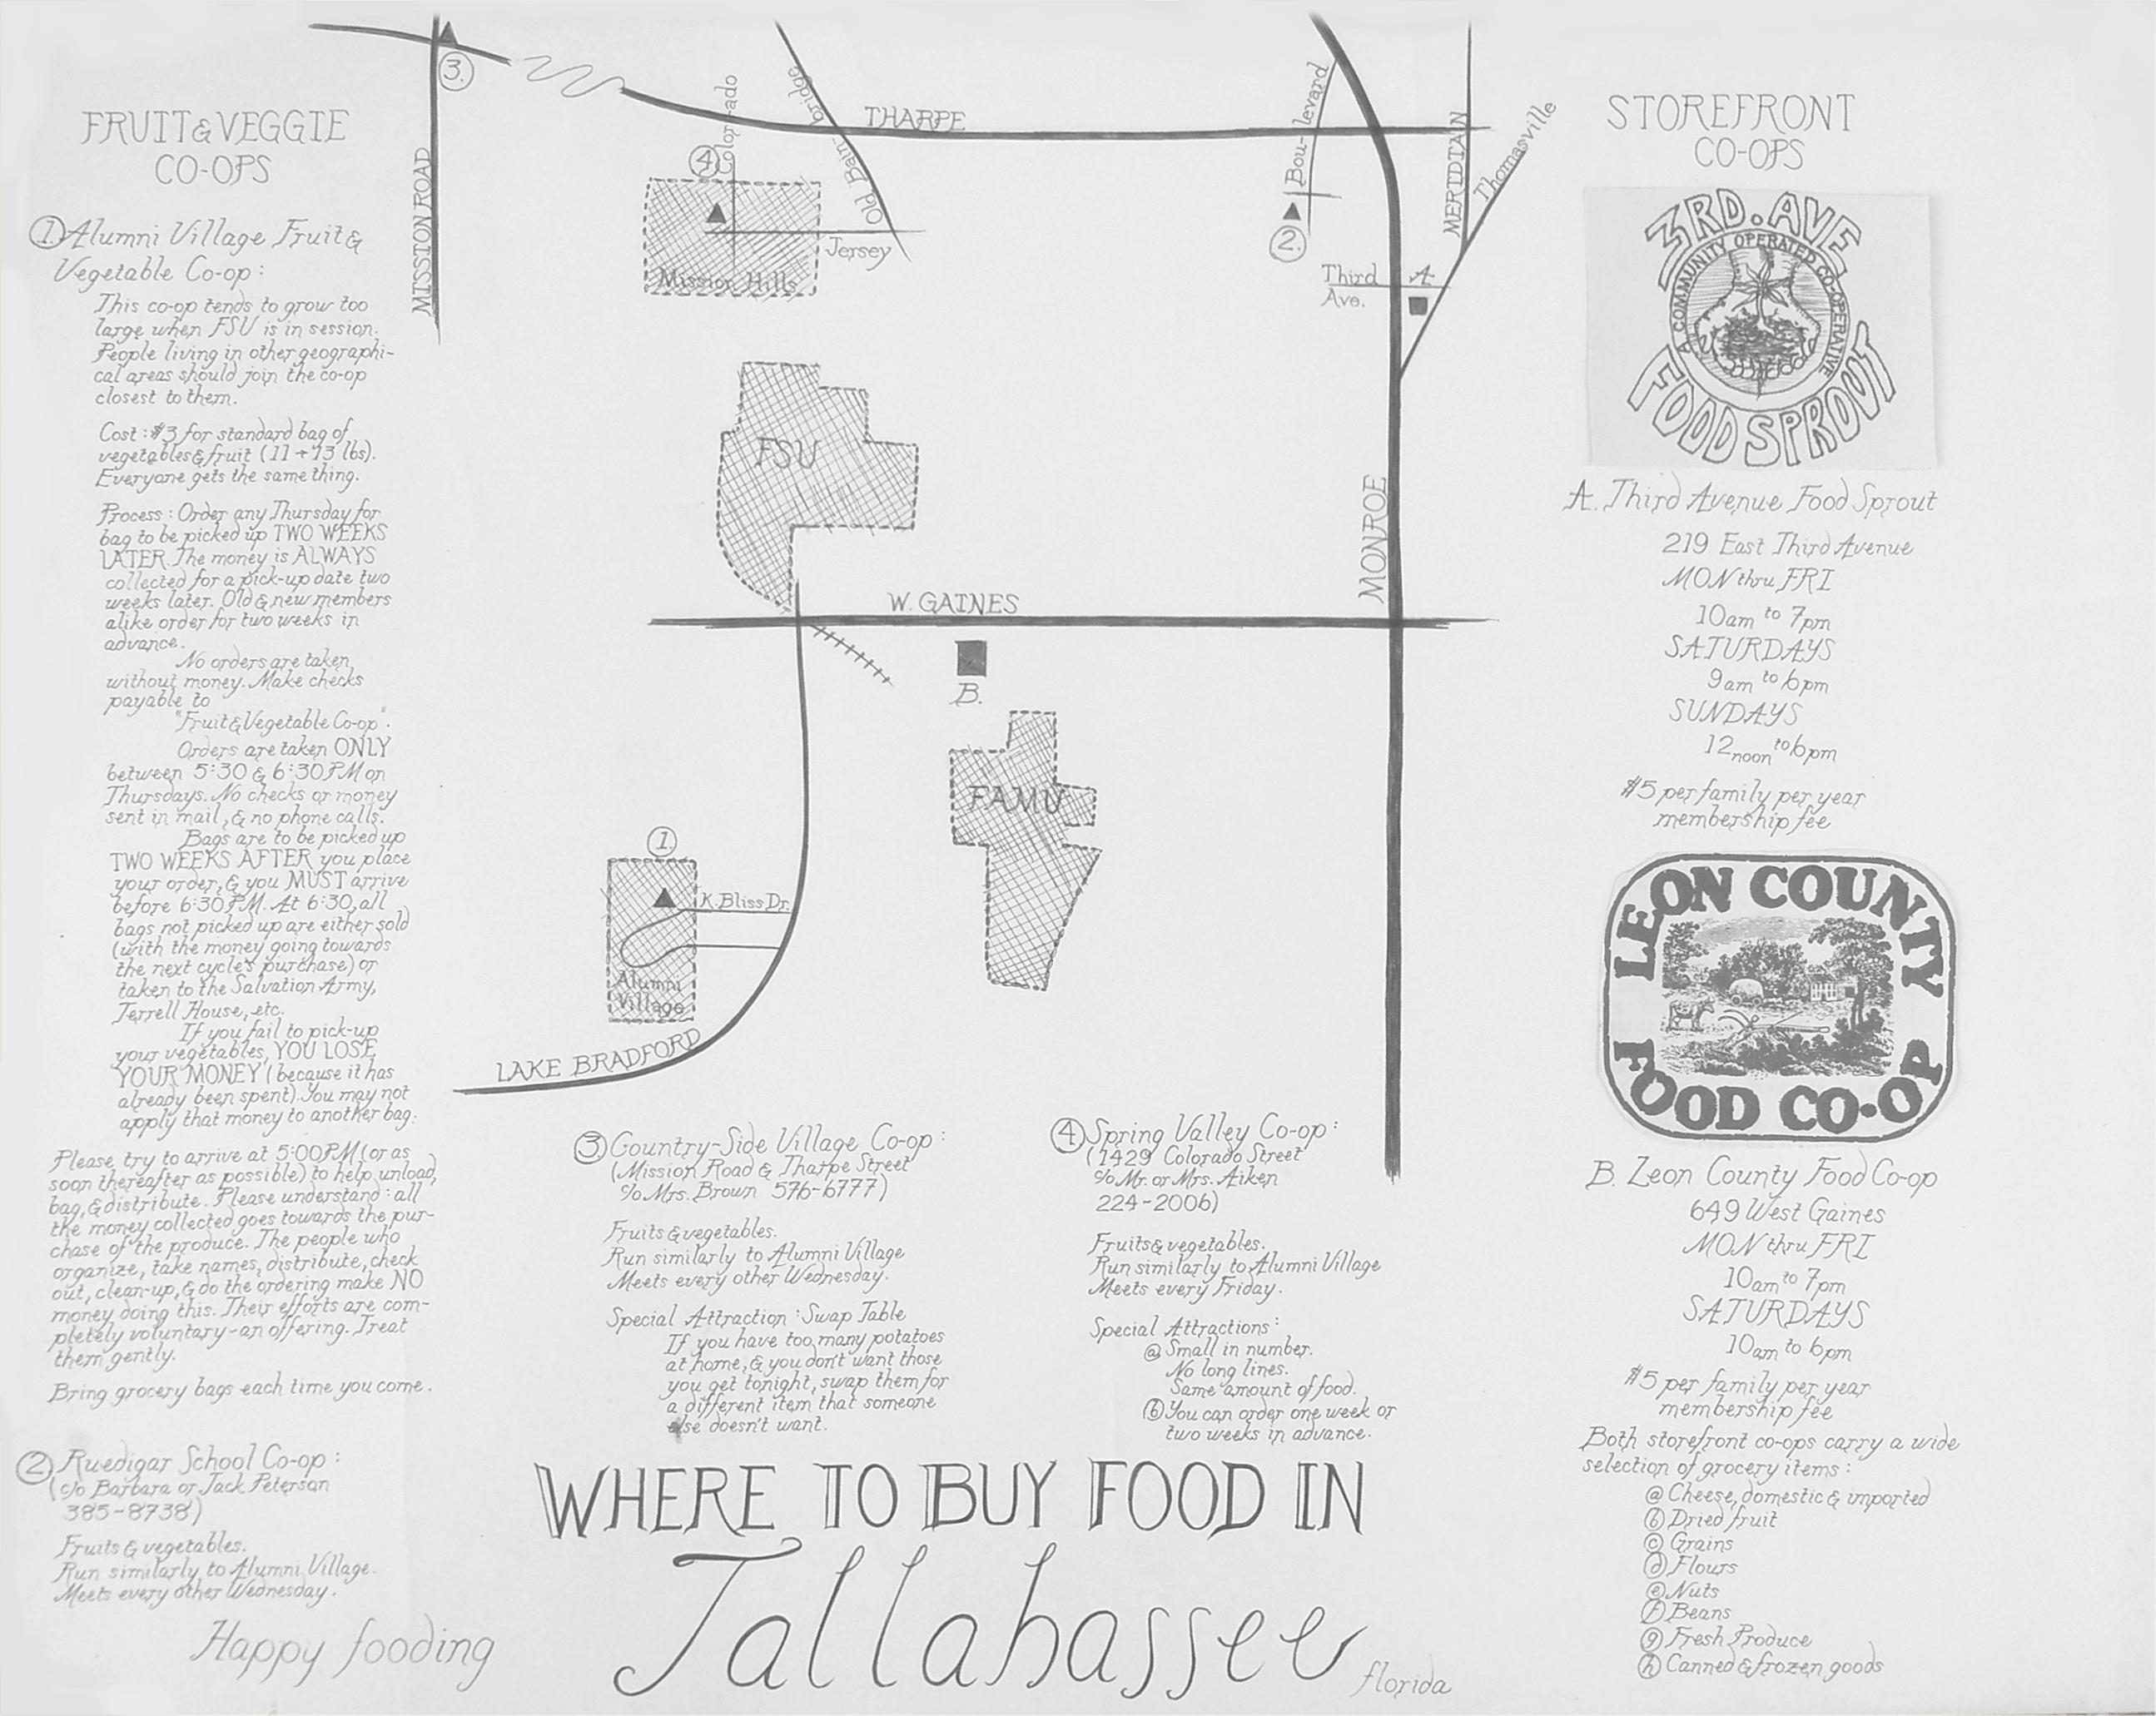 FRUIT & VEGGIE
CO-OPS
1. Alumni Village Fruit &
Vegetable Co-op:
This co-op tends to grow too
large when FSU is in session.
People living in other geographi-
cal areas should join the co-op
closest to them.
Cost: $3 for standard bag of
vegetables & fruit (11 → 13 lbs).
Everyone gets the same thing.
Process: Order any Thursday for
bag to be picked up TWO WEEKS
LATER. The money is ALWAYS
collected for a pick-up date two
weeks later. Old & new members
alike order for two weeks in
advance.
No orders are taken
without money. Make checks
payable to
"Fruit & Vegetable Co-op".
Orders are taken ONLY
between 5:30 & 6:30 PM on
Thursdays. No checks or money
sent in mail, & no phone calls.
Bags are to be picked up
TWO WEEKS AFTER you place
your order, & you MUST arrive
before 6:30 PM. At 6:30, all
bags not picked up are either sold
(with the money going towards
the next cycle's purchase) or
taken to the Salvation Army,
Terrell House, etc.
If you fail to pick-up
your vegetables, YOU LOSE
YOUR MONEY (because it has
already been spent). You may not
apply that money to another bag.
Please try to arrive at 5:00 PM (or as
soon thereafter as possible) to help unload,
bag, & distribute. Please understand: all
the money collected goes towards the pur-
chase of the produce. The people who
organize, take names, distribute, check
out, clean-up, & do the ordering make NO
money doing this. Their efforts are com-
pletely voluntary - an offering. Treat
them gently.
Bring grocery bags each time you come.
2. Ruedigar School Co-op:
(c/o Barbara or Jack Peterson
385-8738)
Fruits & vegetables.
Run similarly to Alumni Village.
Meets every other Wednesday.
Happy fooding
3.
MISSION ROAD
4.
Colorado
Old Bainbridge
THARPE
Jersey
Mission Hills
Boulevard
2.
MERIDIAN
Thomasville
Third
Ave.
A
FSU
MONROE
W. GAINES
B.
FAMU
1.
K. Bliss Dr.
Alumni
Village
LAKE BRADFORD
3. Country-Side Village Co-op:
(Mission Road & Tharpe Street
c/o Mrs. Brown 576-6777)
Fruits & vegetables.
Run similarly to Alumni Village
Meets every other Wednesday.
Special Attraction: Swap Table
If you have too many potatoes
at home, & you don't want those
you get tonight, swap them for
a different item that someone
else doesn't want.
4. Spring Valley Co-op:
(1429 Colorado Street
c/o Mr. or Mrs. Aiken
224-2006)
Fruits & vegetables.
Run similarly to Alumni Village
Meets every Friday.
Special Attractions:
a Small in number.
No long lines.
Same amount of food.
b You can order one week or
two weeks in advance.
WHERE TO BUY FOOD IN
Tallahassee
florida
STOREFRONT
CO-OPS
3RD. AVE
A COMMUNITY OPERATED CO-OPERATIVE
FOOD SPROUT
A. Third Avenue Food Sprout
219 East Third Avenue
MON thru FRI
10am to 7pm
SATURDAYS
9am to 6pm
SUNDAYS
12 noon to 6pm
$5 per family per year
membership fee
LEON COUNTY
FOOD CO-OP
B. Leon County Food Co-op
649 West Gaines
MON thru FRI
10am to 7pm
SATURDAYS
10am to 6pm
$5 per family per year
membership fee
Both storefront co-ops carry a wide
selection of grocery items:
a Cheese, domestic & imported
b Dried fruit
c Grains
d Flours
e Nuts
f Beans
g Fresh Produce
h Canned & frozen goods